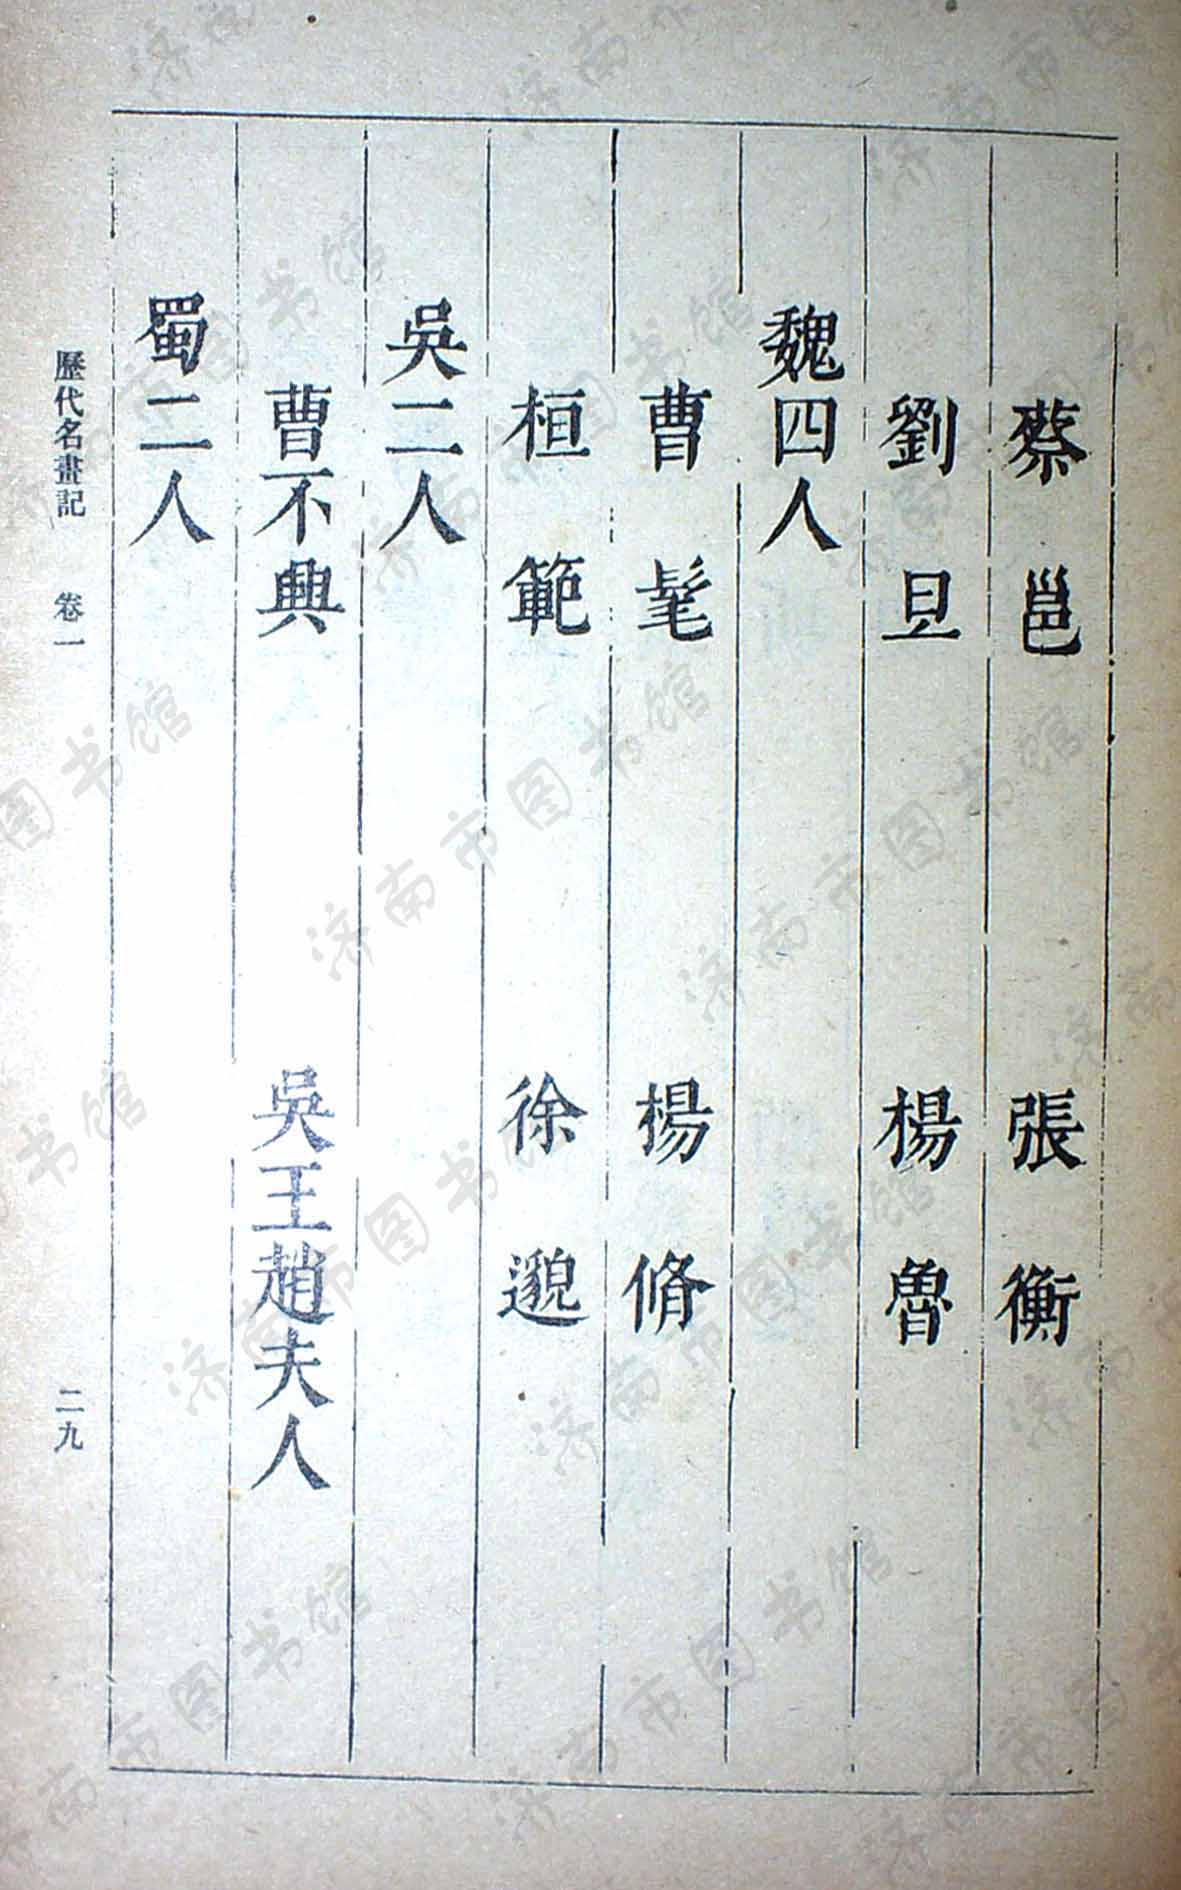 蔡邕　張衡
劉旦　楊魯
魏四人
曹髦　楊脩
桓範　徐邈
吳二人
曹不興　吳王趙夫人
蜀二人
歷代名畫記　卷一　二九
济南市图书馆